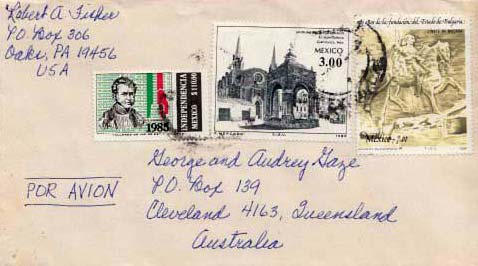 Robert A. Fisher
P.O. Box 306
Oaks, PA 19456
USA
1985
INDEPENDENCIA
MEXICO
MEXICO
3.00
de la fundación del Estado de Bulgaria
Mexico
POR AVION
George and Audrey Gaze
P.O. Box 139
Cleveland 4163, Queensland
Australia